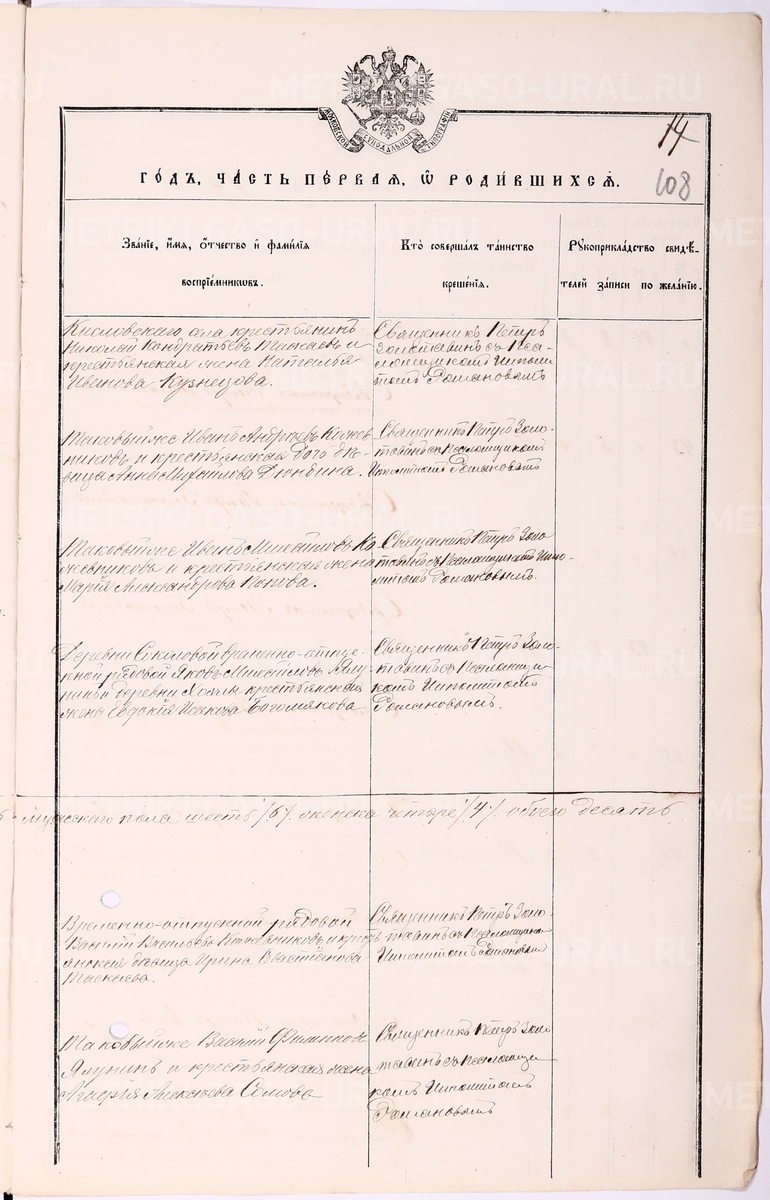 МОСКОВСКОЙ СѴНОДАЛЬНОЙ ТИПОГРАФІИ
14
108
ГО́ДЪ, ЧА́СТЬ ПЕ́РВАЯ, Ѡ҆ РОДИ́ВШИХСѦ.
Зва́нїе, и҆́мя, ѻ҆́тчество и҆ фами́лїя
воспрїе́мниковъ.
Кто̀ соверша́лъ та́инство
креще́нїя.
Рꙋкоприкла́дство свидѣ́-
телей за́писи по жела́нїю.
Кисловскаго села крестьянинъ
Николай Кондратьевъ и
крестьянская жена Наталья
Иванова Кузнецова.
Священникъ Петръ
Золотавинъ съ Пса-
ломщикомъ Ипполи-
томъ Романовымъ
Таковый же Иванъ Андреевъ Кожев
никовъ и крестьянская дочь дѣ-
вица Анна Михайлова Дюндина.
Священникъ Петръ Золо-
тавинъ съ Псаломщикомъ
Ипполитомъ Романовымъ
Таковый же Иванъ Ко
жевниковъ и крестьянская жена
Марія Александрова Попова.
Священникъ Петръ Золо
тавинъ съ Псаломщикомъ Иппо-
литомъ Романовымъ.
Деревни Соколовой временно-отпус-
кной рядовой Яковъ Ялу-
нинъ и деревни крестьянская
жена Евдокія Исакова Богомякова
Священникъ Петръ Золо-
тавинъ съ Псаломщи-
комъ Ипполитомъ
Романовымъ.
мужескаго пола шесть /6/. женска четыре /4/. обоего десять
Временно-отпускной рядовой
Василій Васильевъ Кожевниковъ и крест
янская дѣвица Ирина Севастьянова
Таскаева.
Священникъ Петръ Золо-
тавинъ съ Псаломщикомъ
Ипполитомъ Романовымъ
Таковый же Василій Филиппов
Ялунинъ и крестьянская жена
Агафія Алексѣева Сомова
Священникъ Петръ Золо
тавинъ съ Псаломщи
комъ Ипполитомъ
Романовымъ